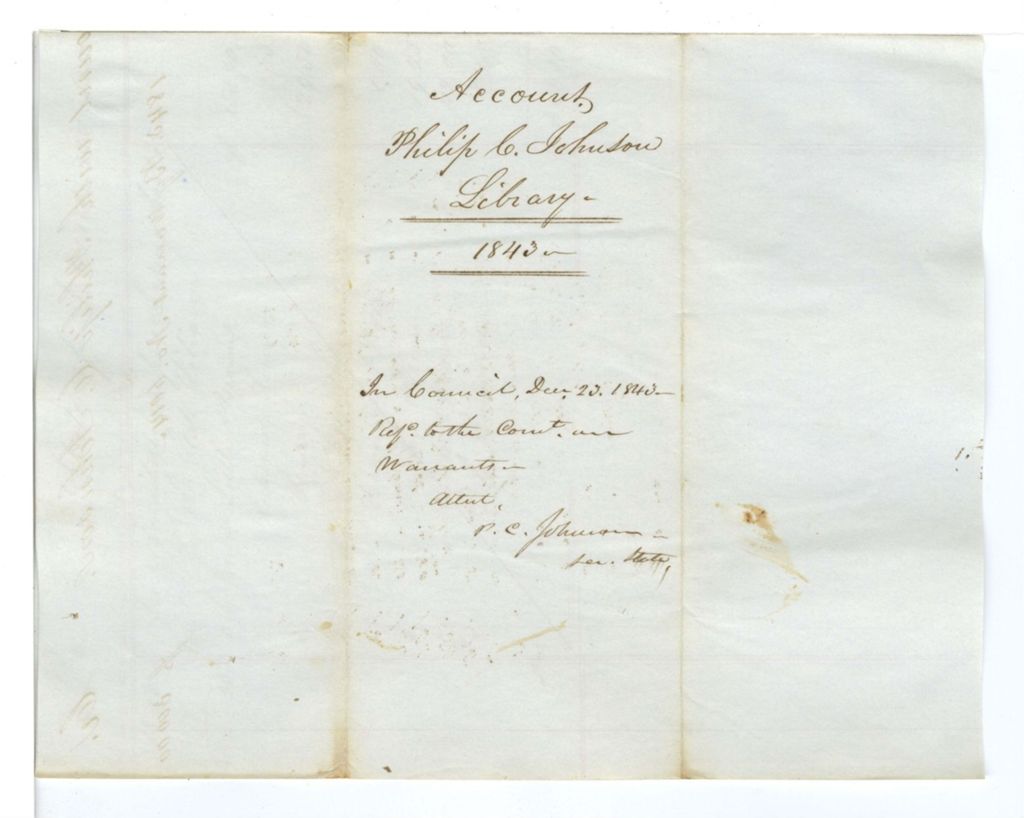 Account,
Philip C. Johnson
Library -
1843 -
In Council, Dec. 23. 1843 -
Refd. to the Comt. on
Warrants -
Attest,
P. C. Johnson -
Sec. State,